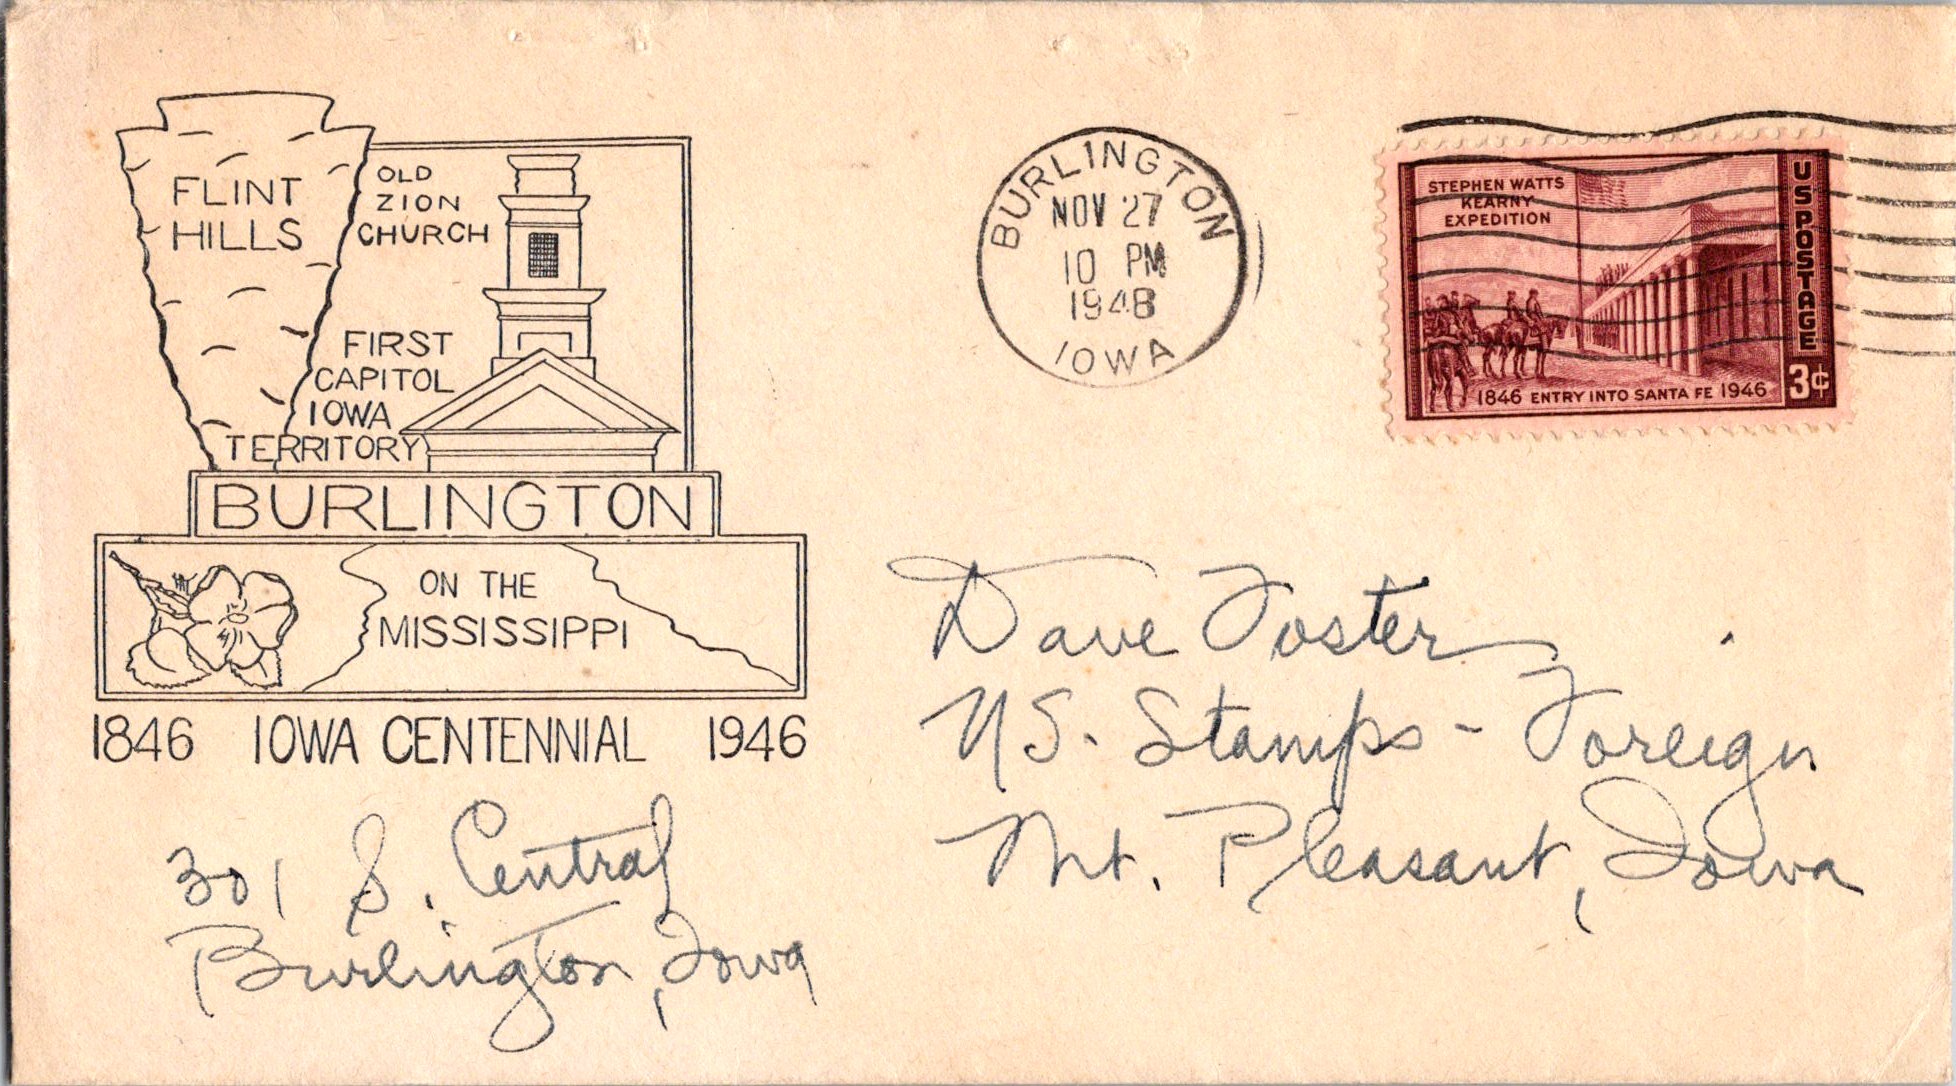 FLINT
HILLS
OLD
ZION
CHURCH
FIRST
CAPITOL
IOWA
TERRITORY
BURLINGTON
ON THE
MISSISSIPPI
1846 IOWA CENTENNIAL 1946
BURLINGTON
NOV 27
10 PM
1948
IOWA
STEPHEN WATTS
KEARNY
EXPEDITION
US POSTAGE
1846 ENTRY INTO SANTA FE 1946
3¢
Dave Foster
US. Stamps - Foreign
Mt. Pleasant, Iowa
301 S. Central
Burlington, Iowa